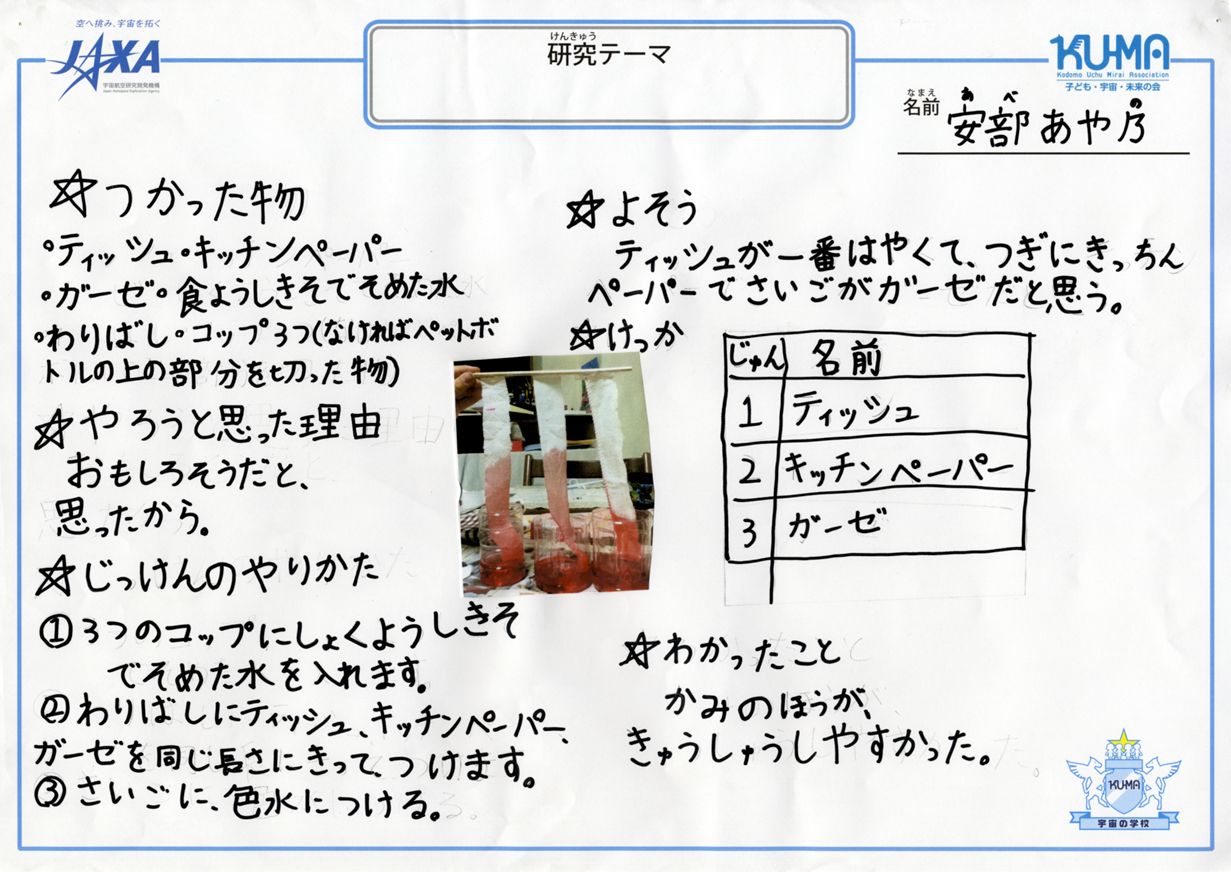 空へ挑み、宇宙を拓く
JAXA
宇宙航空研究開発機構
Japan Aerospace Exploration Agency
けんきゅう
研究テーマ
KU-MA
Kodomo Uchu Mirai Association
子ども・宇宙・未来の会
なまえ
名前
あ べ の
安部 あや乃
☆つかった物
・ティッシュ・キッチンペーパー
・ガーゼ・食ようしきそでそめた水
・わりばし・コップ3つ(なければペットボ
トルの上の部分を切った物)
☆やろうと思った理由
おもしろそうだと、
思ったから。
☆じっけんのやりかた
①3つのコップにしょくようしきそ
でそめた水を入れます。
②わりばしにティッシュ、キッチンペーパー、
ガーゼを同じ長さにきって、つけます。
③さいごに、色水につける。
☆よそう
ティッシュが一番はやくて、つぎにきっちん
ペーパーでさいごがガーゼだと思う。
☆けっか
じゅん 名前
1 ティッシュ
2 キッチンペーパー
3 ガーゼ
☆わかったこと
かみのほうが、
きゅうしゅうしやすかった。
KU-MA
宇宙の学校